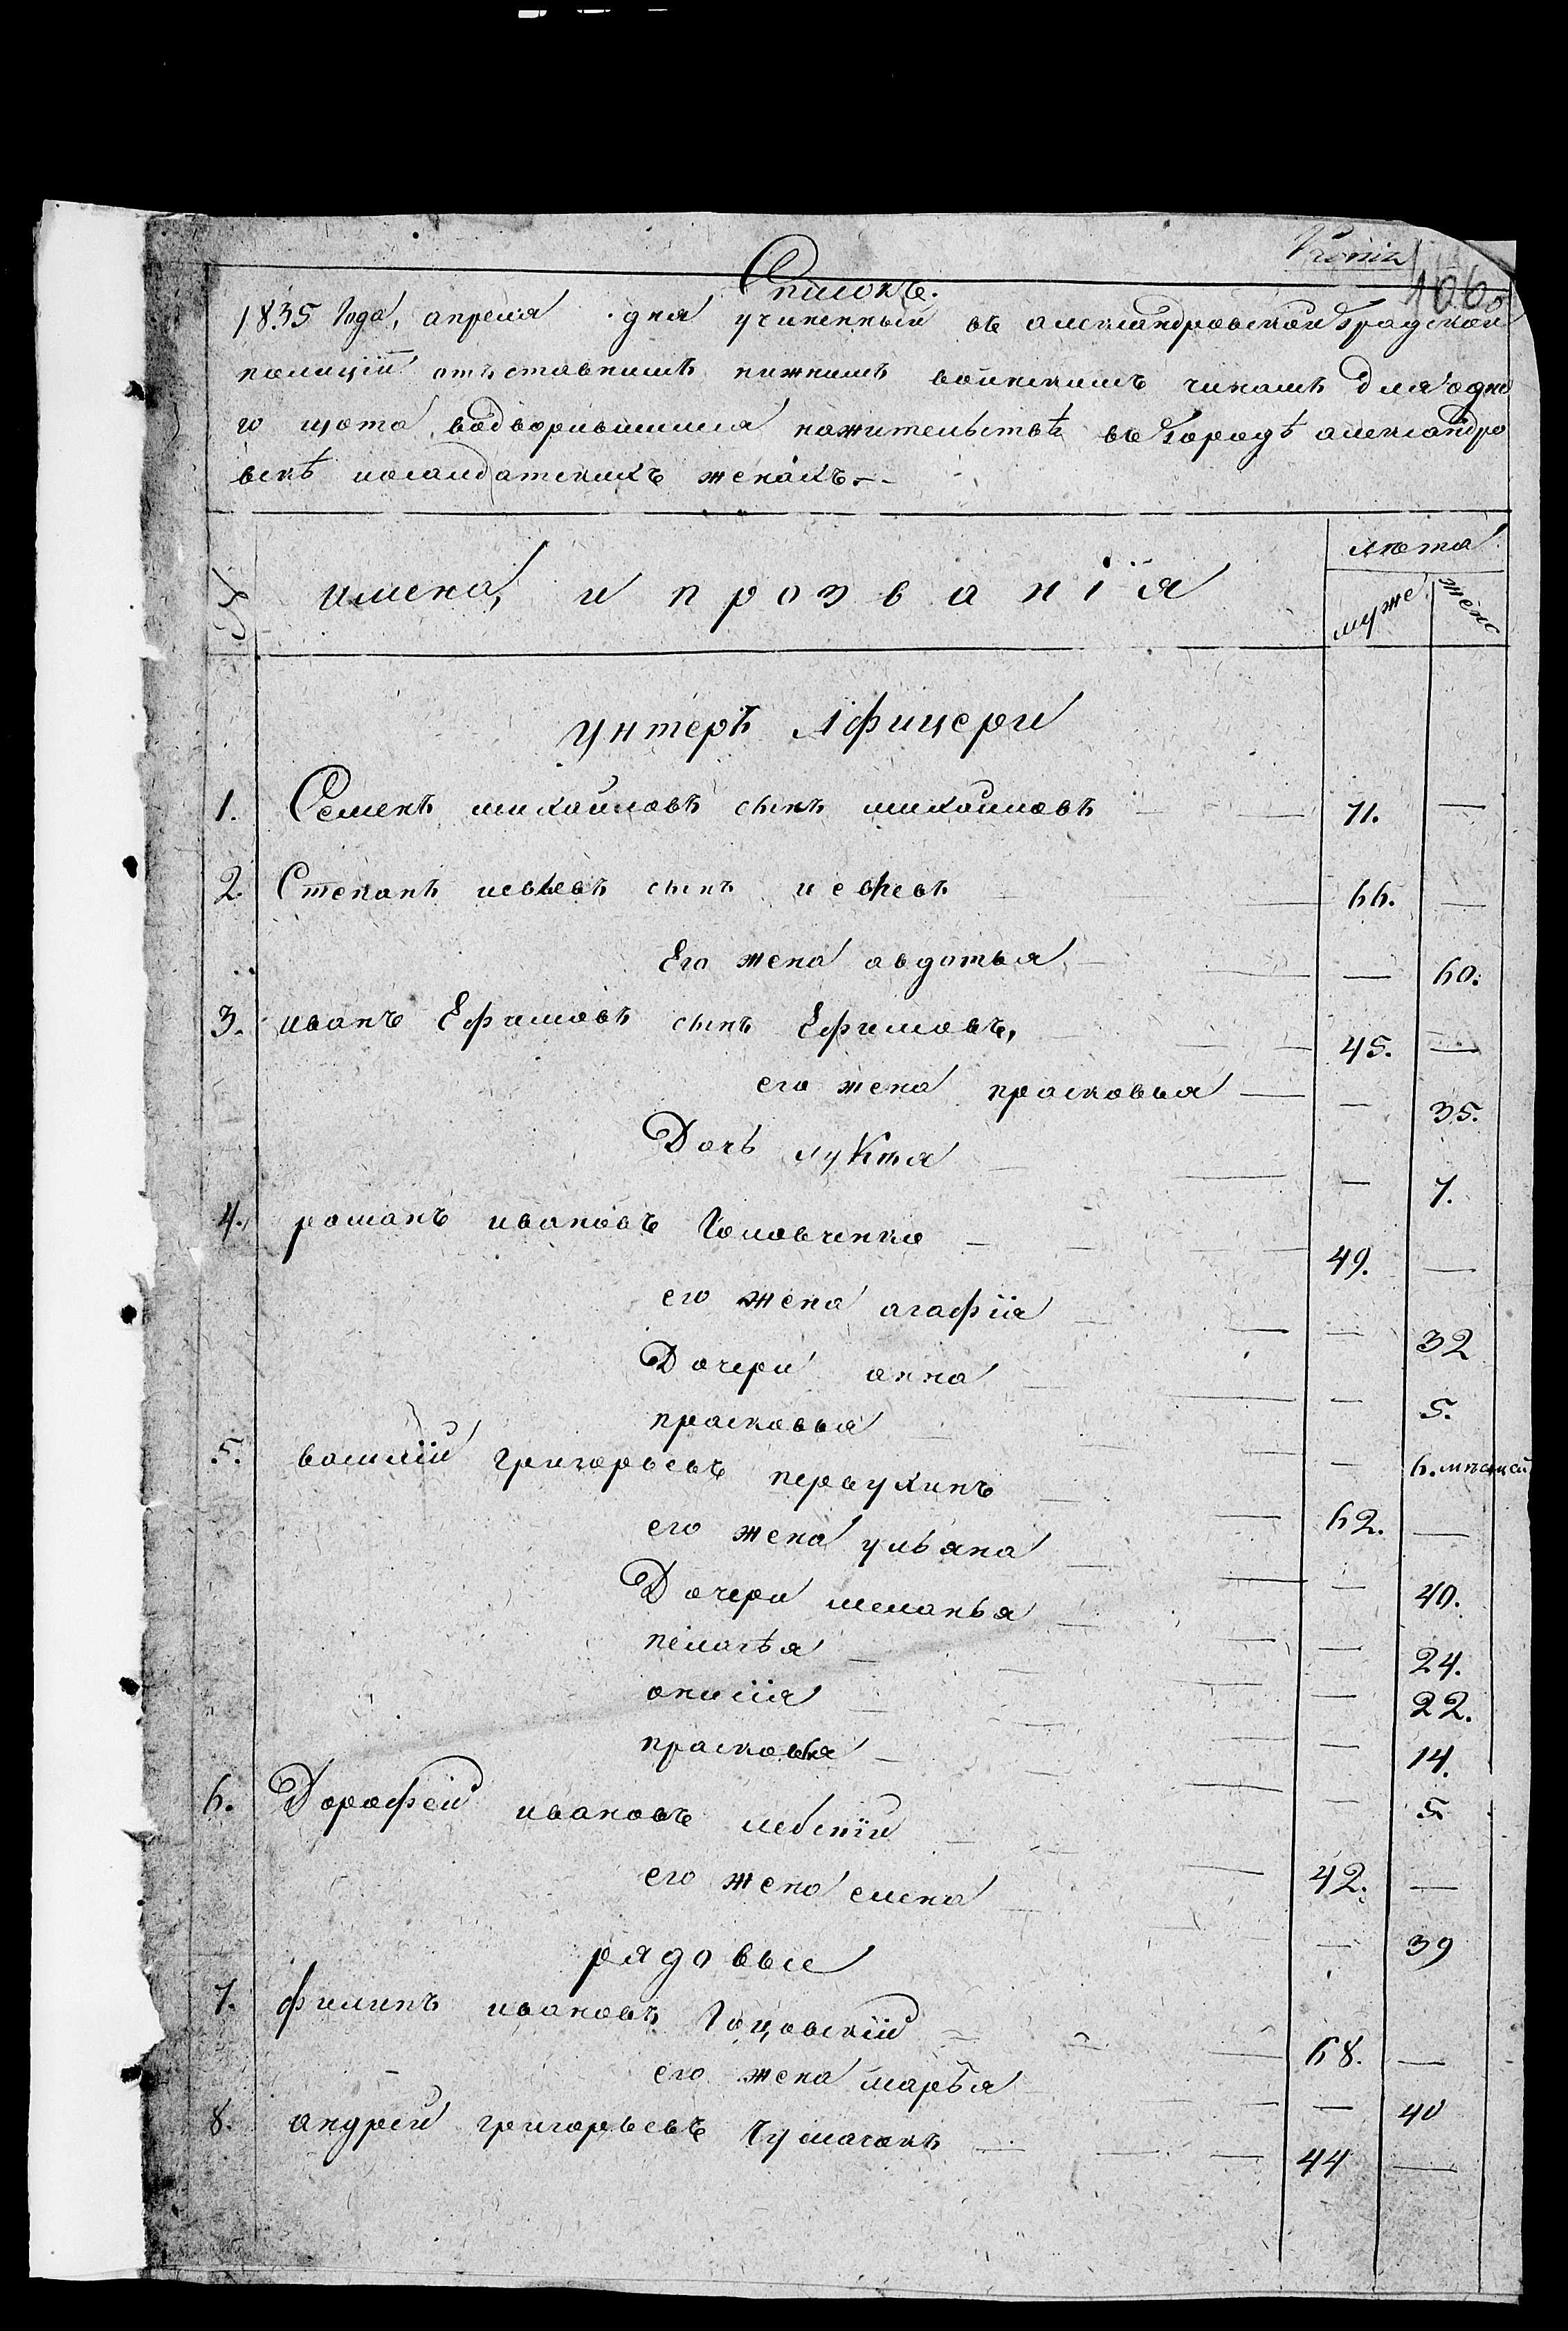 Списокъ.
1066
1835 Года, апреля дня учиненный въ александровской Градской
полиции отъставнымъ нижнимъ воинскимъ чинамъ для одно
го щота водворившимся нажительствѣ въ Городѣ александро
вскѣ исалдатскихъ женахъ.—
имена, и прозванiя
лѣта
муже
женс
унтеръ Афицери
1. Семенъ михайловъ сынъ михайловъ — 71. —
2. Степанъ иевлевъ сынъ иевлевъ — 66. —
Его жена авдотья — — 60.
3. иванъ Ефимовъ сынъ Ефимовъ, — 45. —
его жена прасковья — — 35.
Дочь — — 7.
4. романъ ивановъ Головченко — 49. —
его жена агафiя — — 32
Дочери анна — — 5.
прасковья — — 6. мѣсяцей
5. василiй григорьевъ первухинъ — 62. —
его жена ульяна — — 40.
Дочери меланья — — 24.
пелагѣя — — 22.
анисiя — — 14.
прасковья — — 5.
6. Дорофей ивановъ лебскiй — 42. —
его жена елена — — 39
рядовые
7. филипъ ивановъ Гоцовскiй — 68. —
его жена марья — — 40
8. андрей григорьевъ Чумаченъ — 44 —